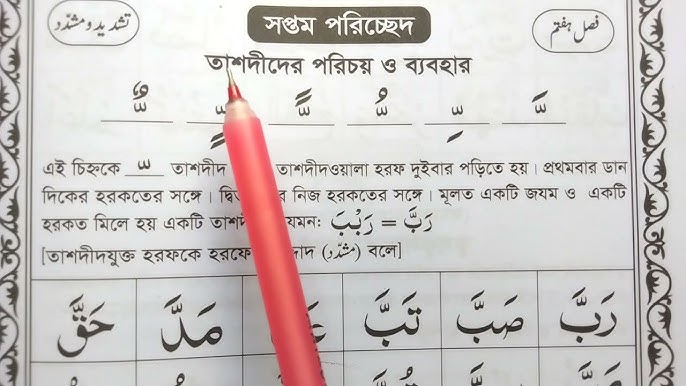 تشدید و مشدّد
সপ্তম পরিচ্ছেদ
فصل هفتم
তাশদীদের পরিচয় ও ব্যবহার
এই চিহ্নকে ّ তাশদীদ তাশদীদওয়ালা হরফ দুইবার পড়িতে হয়। প্রথমবার ডান
দিকের হরকতের সঙ্গে। নিজ হরকতের সঙ্গে। মূলত একটি জযম ও একটি
হরকত মিলে হয় একটি যেমন: رَبْبَ = رَبَّ
[তাশদীদযুক্ত হরফকে (مشدّد) বলে]
رَبَّ صَبَّ تَبَّ مَدَّ حَقَّ